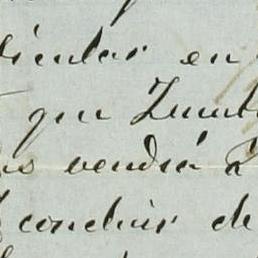 ticular en
que Zumal
vendrá á
concluir de